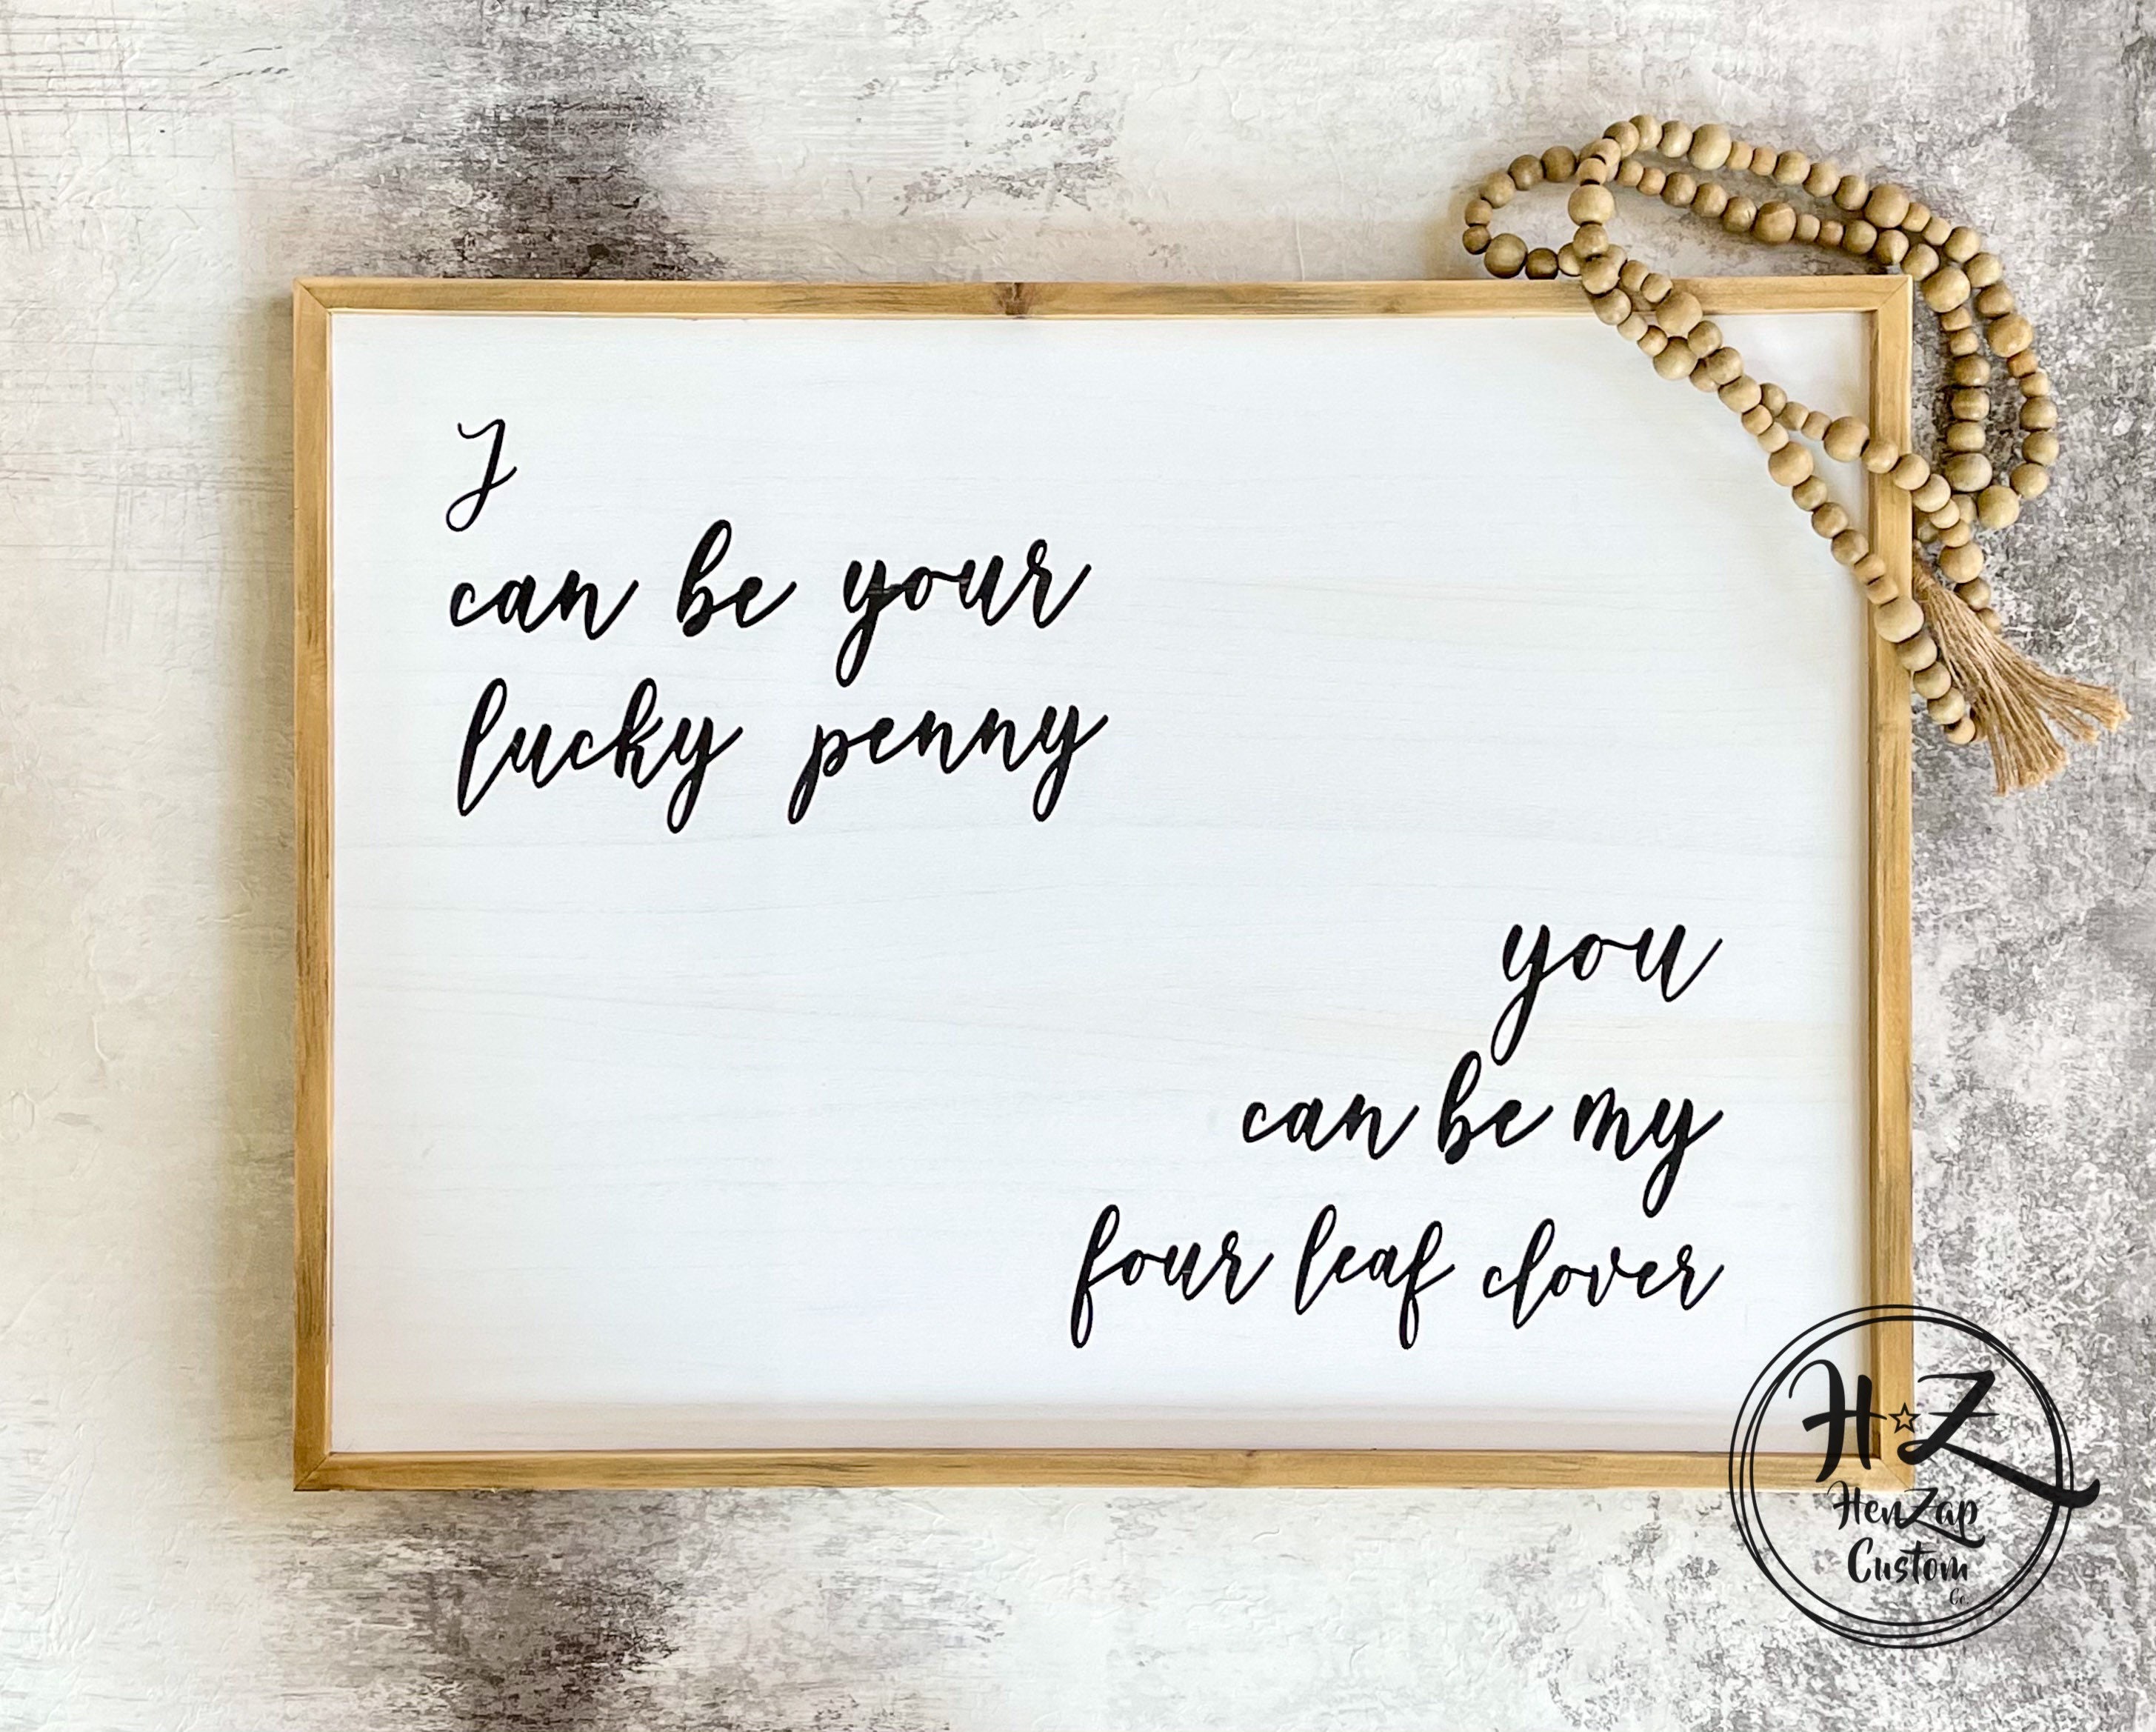 I
can be your
lucky penny
you
can be my
four leaf clover
H☆Z
HenZap
Custom
Co.